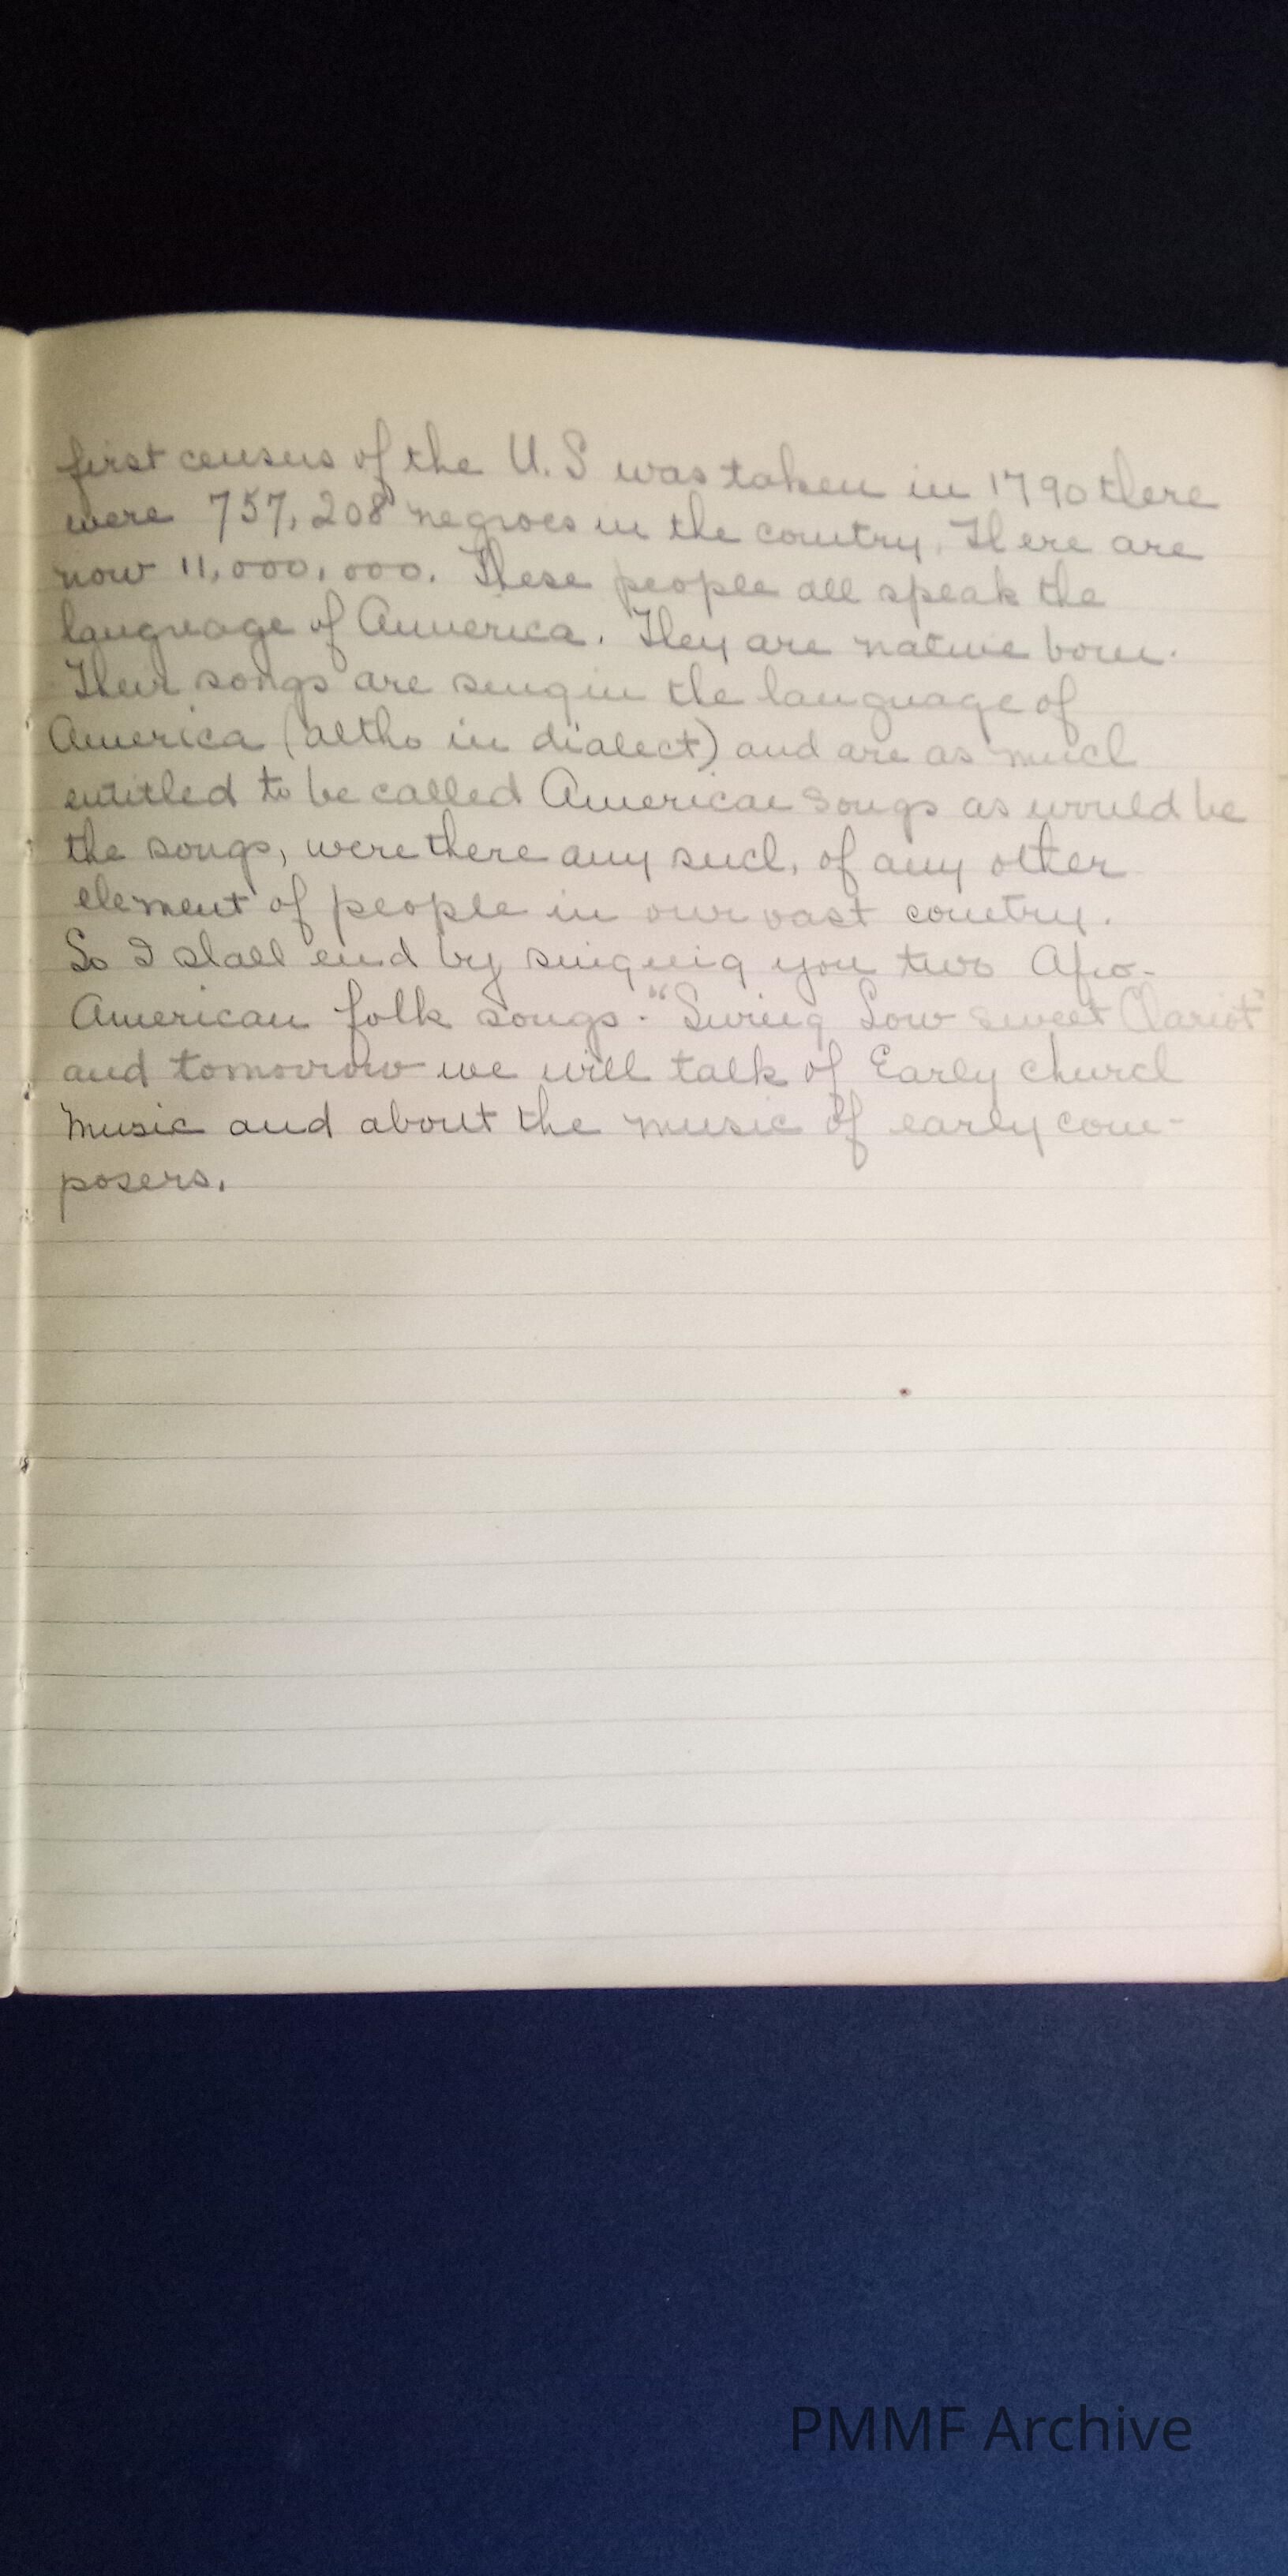 first census of the U.S was taken in 1790 there
were 757,208 negroes in the country. There are
now 11,000,000. These people all speak the
language of America. They are native born.
Their songs are sung in the language of
America (altho in dialect) and are as much
entitled to be called American songs as would be
the songs, were there any such, of any other
element of people in our vast country.
So I shall end by singing you two Afro-
American folk songs. "Swing Low sweet Chariot"
and tomorrow we will talk of Early church
music and about the music of early com-
posers.
PMMF Archive